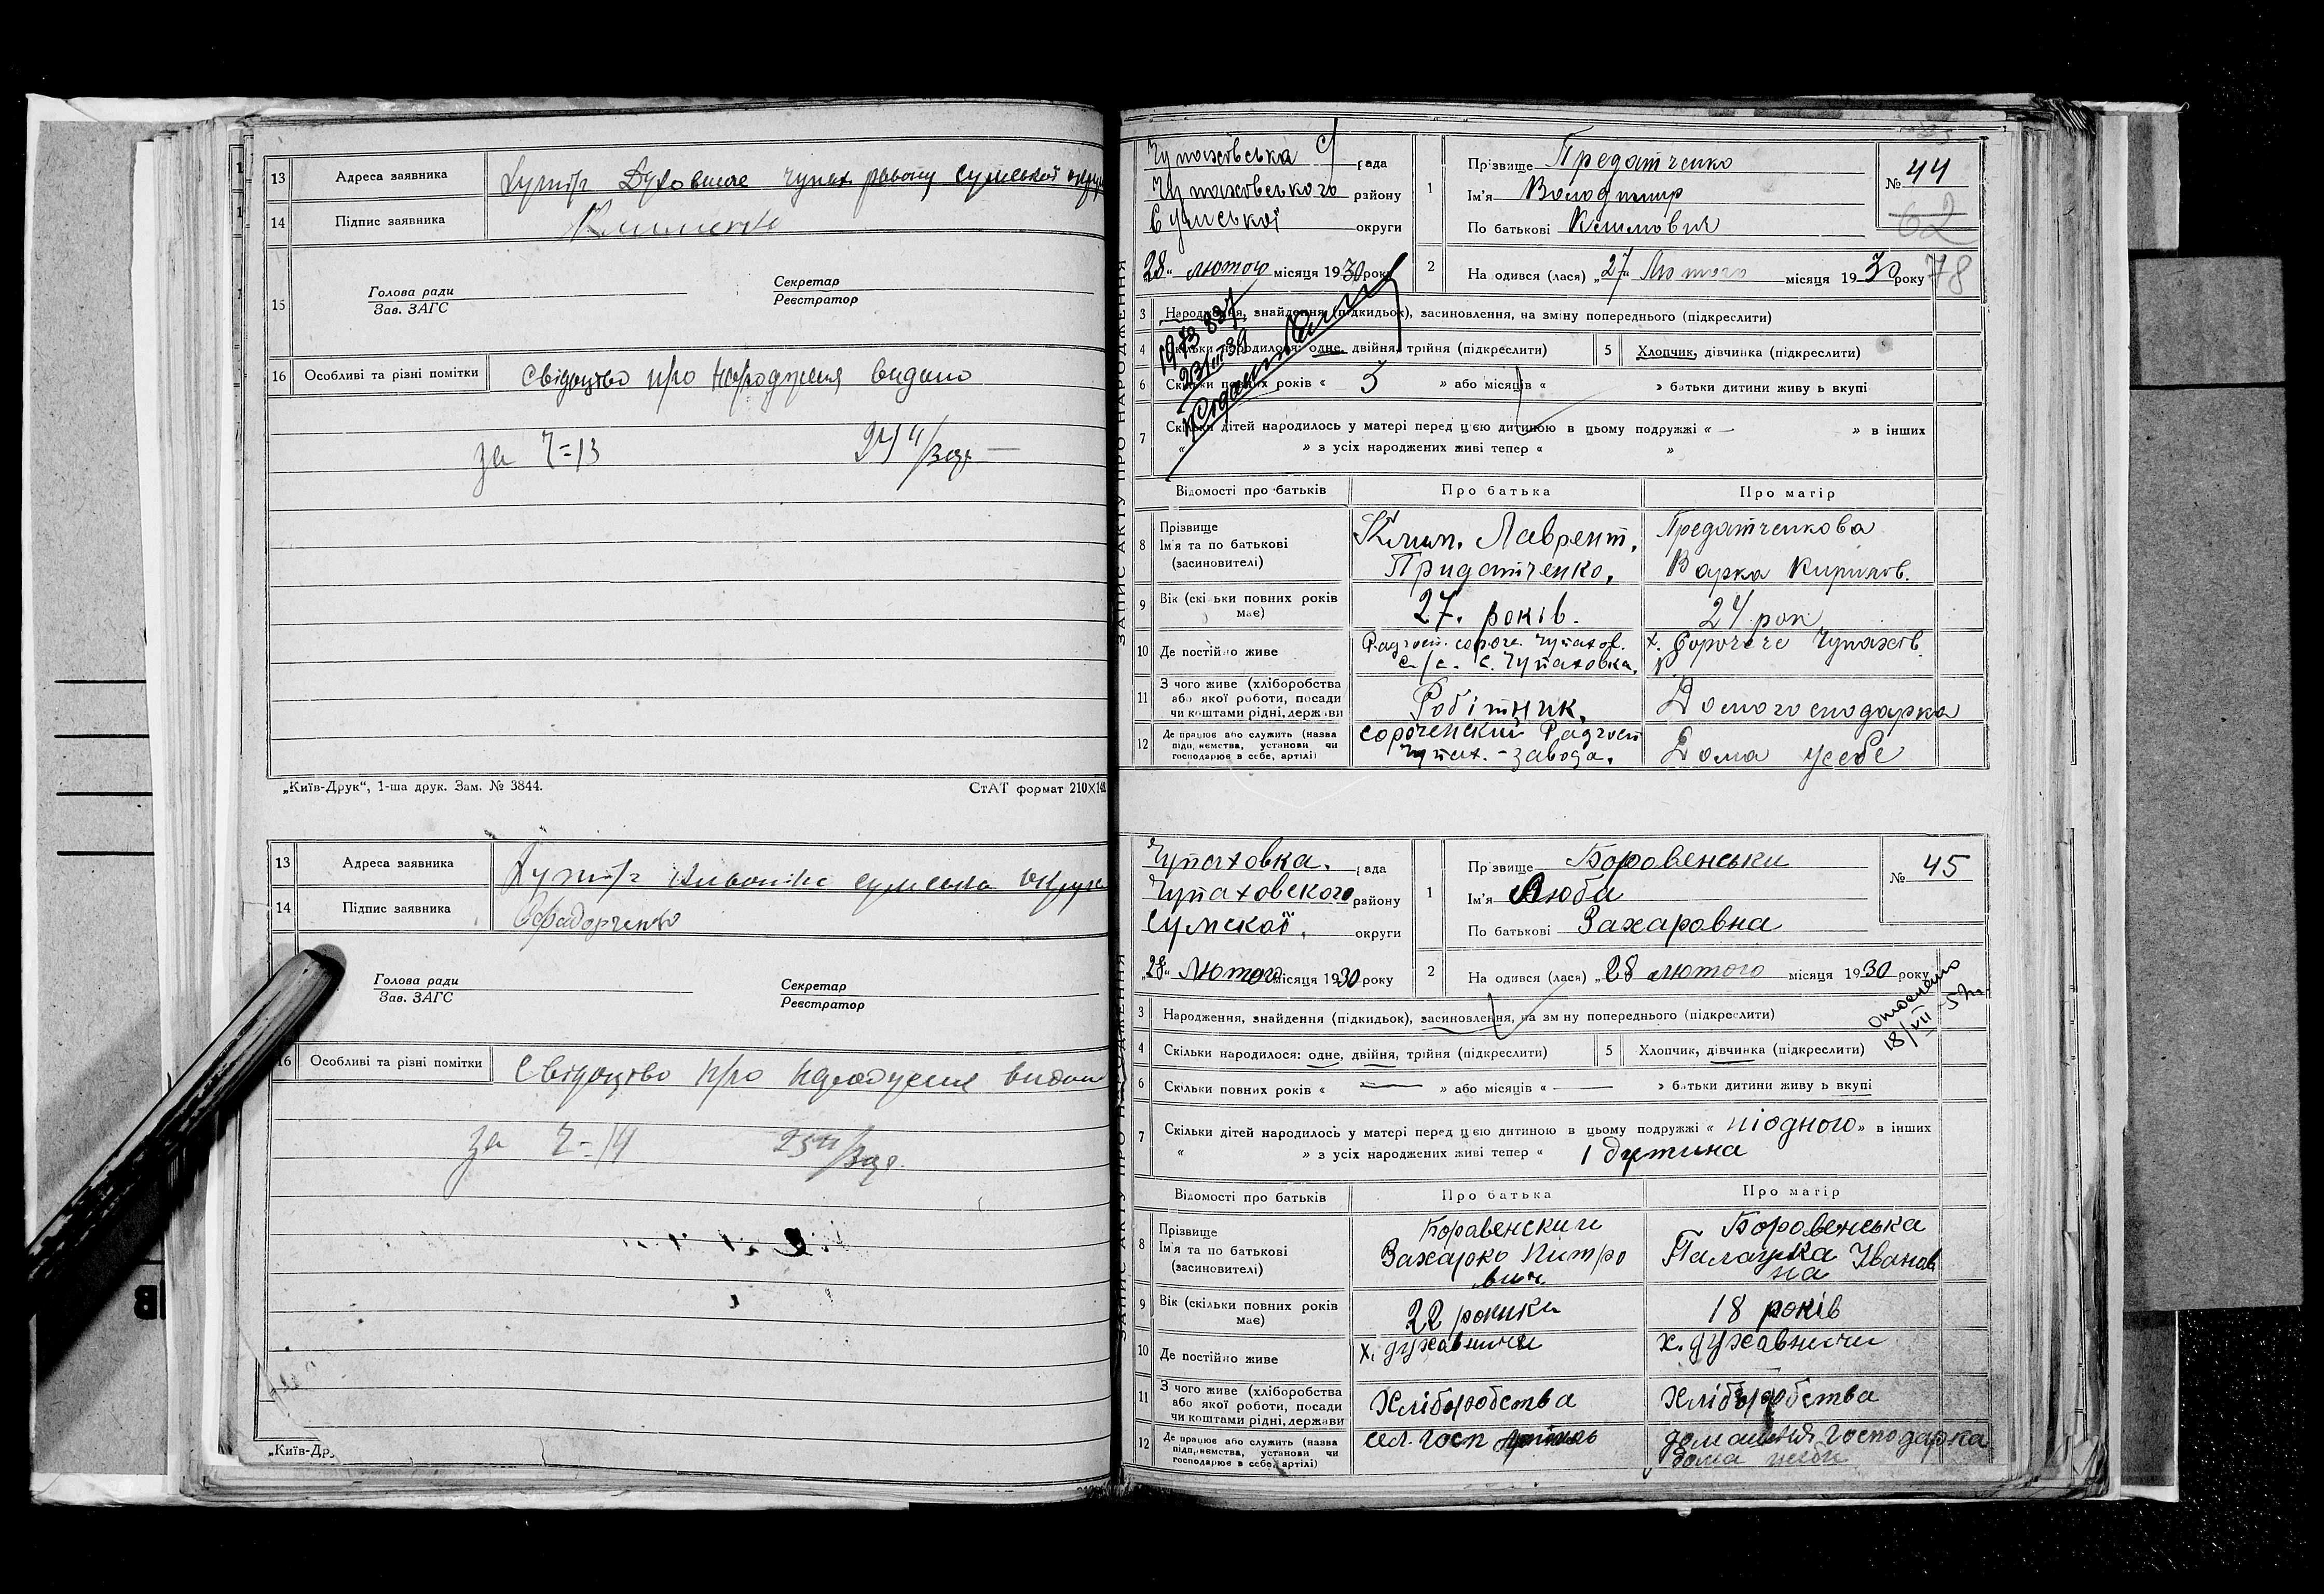 13 Адреса заявника Хутір Духовниче Чупах. району Сумської округ
14 Підпис заявника Клименко
15 Голова ради
Зав. ЗАГС
Секретар
Реєстратор
16 Особливі та різні помітки Свідоцтво про народження видано
за Ч=13
„Київ-Друк“, 1-ша друк. Зам. № 3844. СтАТ формат 210X14
13 Адреса заявника Хутір Сумська Округ
14 Підпис заявника Федорченко
Голова ради
Зав. ЗАГС
Секретар
Реєстратор
16 Особливі та різні помітки Свідоцтво про народження видан
за Ч=14
„Київ-Др
ЗАПИС АКТУ ПРО НАРОДЖЕННЯ
Чупахівська с/ рада
Чупахівського району
Сумської округи
„28“ лютого місяця 1930 року
1 Прізвище Предатченко
Ім'я Володимир
По батькові Климович
№ 44
62
78
2 Народився (лася) „27“ Лютого місяця 1930 року
3 Народження, знайдення (підкидьок), засиновлення, на зміну попереднього (підкреслити)
4 Скільки народилося: одне, двійня, трійня (підкреслити) 5 Хлопчик, дівчинка (підкреслити)
6 Скільки повних років « 5 » або місяців « » батьки дитини живуть вкупі
7 Скільки дітей народилось у матері перед цією дитиною в цьому подружжі « — » в інших
« » з усіх народжених живі тепер « »
Відомості про батьків Про батька Про матір
8 Прізвище
Ім'я та по батькові
(засновителі)
Клим. Лаврент.
Придатченко.
Предатченкова
Варка Кирилов.
9 Вік (скільки повних років має) 27. років. 24 рок
10 Де постійно живе Радгосп. сороч. Чупахов.
с/с. с. Чупаховка.
х. Сорочече Чупахів.
11 З чого живе (хліборобства
або якої роботи, посади
чи коштами рідні, держави
Робітник. Домогосподарка
12 Де працює або служить (назва
підприємства, установи чи
господарює в себе, артілі)
сороченский Радгосп
Чупах. - завода.
Дома у себе
ЗАПИС АКТУ ПРО НАРОДЖЕННЯ
Чупаховка. рада
Чупаховского району
Сумской. округи
„28“ Лютого місяця 1930 року
1 Прізвище Боровенськи
Ім'я Люба
По батькові Захаровна
№ 45
2 Народився (лася) „28 лютого місяця 1930 року
18/VII-57.
3 Народження, знайдення (підкидьок), засиновлення, на зміну попереднього (підкреслити)
4 Скільки народилося: одне, двійня, трійня (підкреслити) 5 Хлопчик, дівчинка (підкреслити)
6 Скільки повних років « — » або місяців « — » батьки дитини живуть вкупі
7 Скільки дітей народилось у матері перед цією дитиною в цьому подружжі « ніодного » в інших
« » з усіх народжених живі тепер « 1 дитина
Відомості про батьків Про батька Про матір
8 Прізвище
Ім'я та по батькові
(засновителі)
Боравенский
Захарко Питро
вич
Боровенська
Палажка Іванов
на
9 Вік (скільки повних років має) 22 рокики 18 років
10 Де постійно живе х. духавничи х. духавничи
11 З чого живе (хліборобства
або якої роботи, посади
чи коштами рідні, держави
Хліборобства Хліборобства
12 Де працює або служить (назва
підприємства, установи чи
господарює в себе, артілі)
сел. госп артиль
домашня господарка
дома